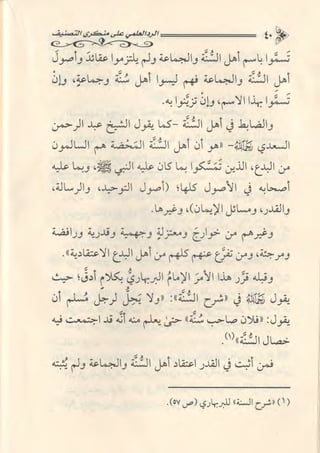 ٤٠ الرد العلمي على منكري التصنيف
تسمَّوا باسم أهل السُّنَّة والجماعة ولم يلتزموا عقائدَ وأصولَ
أهل السُّنَّة والجماعة فهم ليسوا أهل سُنَّة وجماعةٍ، وإنْ
تسمَّوا بهذا الاسم، وإنْ تزيَّنوا به.
والضابط في أهل السُّنَّة -كما يقول الشيخ عبد الرحمن
السعدي رَحِمَهُ اللهُ- «هو أن أهل السُّنَّة المَحْضَة هم السالمون
من البدع، الذين تمسَّكوا بما كان عليه النبي ﷺ، وما عليه
أصحابه في الأصول كلها؛ (أصول التوحيد، والرسالة،
والقدر، ومسائل الإيمان)، وغيرها.
وغيرهم من خوارجَ ومعتزلةٍ وجهميةٍ وقدريةٍ ورافضة
ومرجئة، ومن تفرَّع عنهم كلهم من أهل البدع الاعتقادية».
وقبله قرَّر هذا الأمرَ الإمامُ البربهاريُّ بكلامٍ أدقَّ؛ حيث
يقول رَحِمَهُ اللهُ في «شرح السُّنَّة»: «ولا يَحِلُّ لرجل مُسلم أن
يقول: «فلان صاحب سُنَّة» حتىٰ يعلم منه أنَّه قد اجتمعت فيه
خصال السُّنَّة»(١).
فمن أثبت في القدر اعتقاد أهل السُّنَّة والجماعة ولم يُثبته
(١) «شرح السنة» للبربهاري (ص ٥٧).